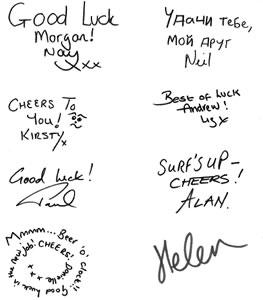 Good Luck
Morgan!
Nay xx
Удачи тебе,
мой друг
Neil
CHEERS TO
YOU!
KIRSTY x
Best of Luck
Andrew!
Liz x
Good Luck!
Paul
SURF'S UP -
CHEERS!
ALAN.
Mmmm... Beer 'O' Clock!! Good luck in the new job. CHEERS! Danielle x x x
Helen